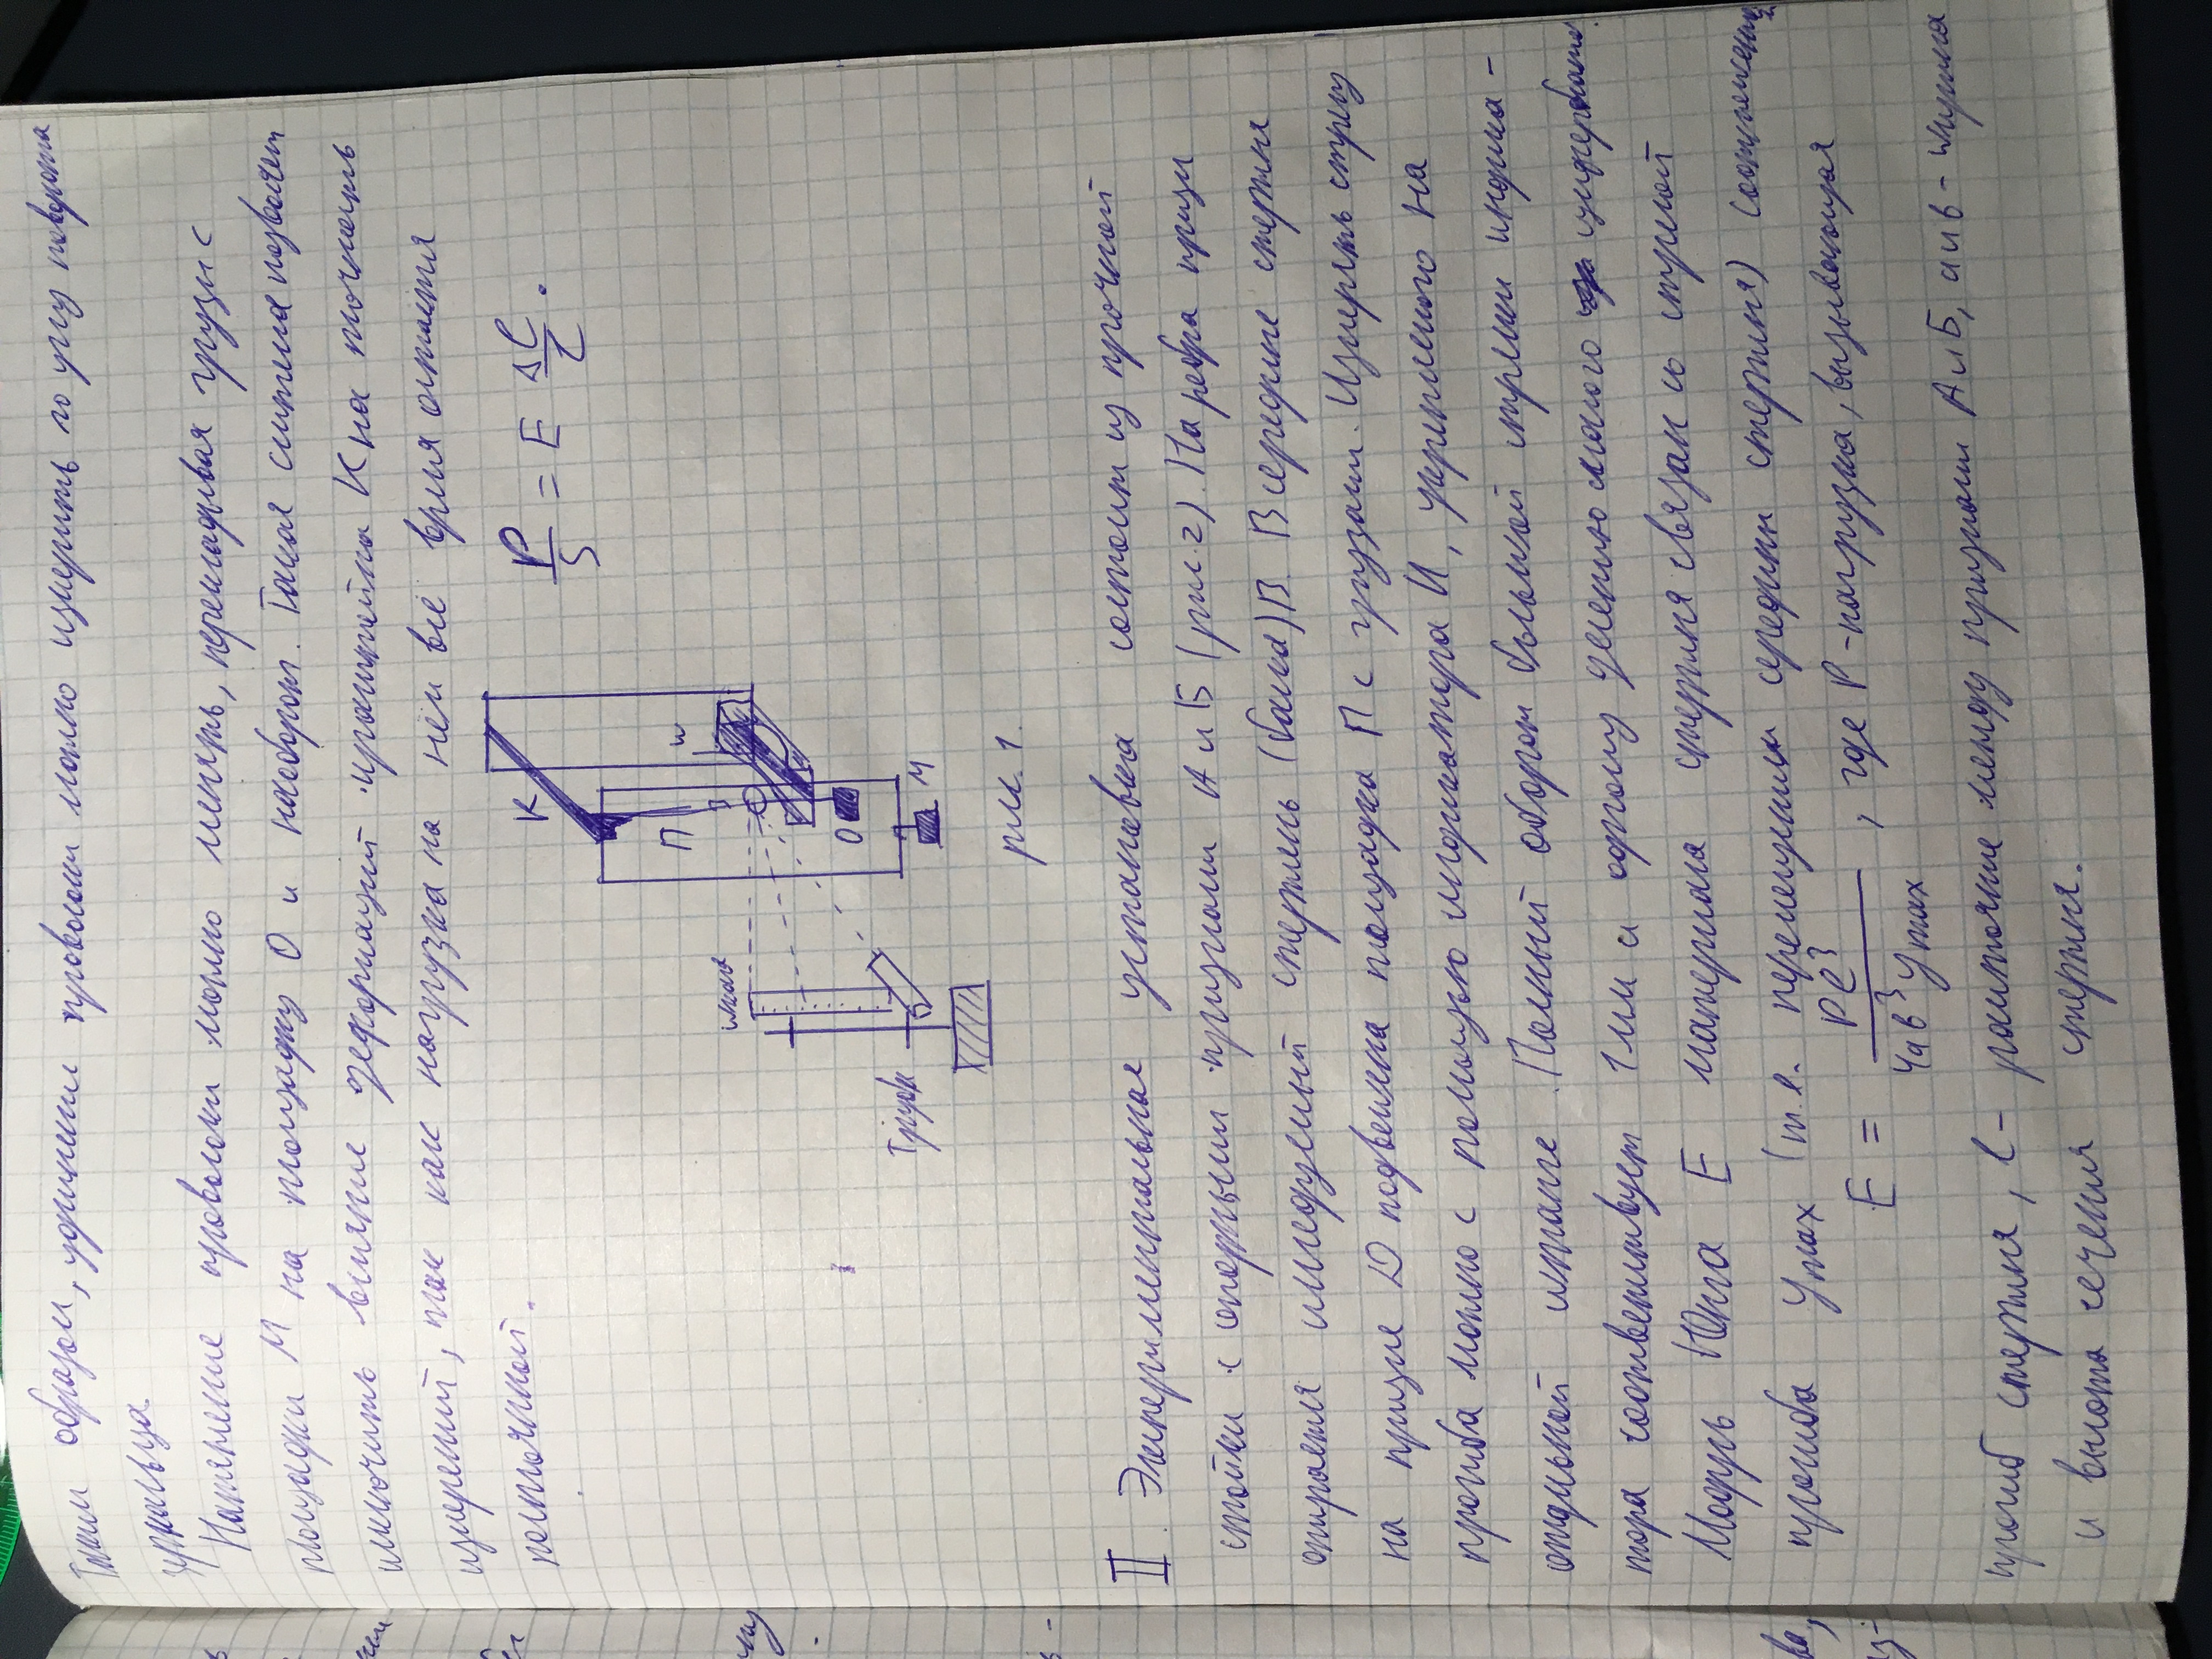 Таким образом, удлинение проволоки можно измерить по углу поворота
зеркальца.
Натяжение проволоки можно менять, перекладывая грузы с
площадки М на площадку О и наоборот. Такая система позволяет
исключить влияние деформаций кронштейна К на точность
измерений, так как нагрузка на нём всё время остаётся
постоянной.
K
P/S = E Δl/l.
П
Ш
шкала
О
Труба
М
рис. 1.
II. Экспериментальная установка состоит из прочной
стойки с опорными призмами А и Б (рис. 2). На ребра призм
опирается исследуемый стержень (балка) В. В середине стержня
на призме D подвешена площадка П с грузами. Измерять стрелу
прогиба можно с помощью индикатора И, укреплённого на
отдельной штанге. Полный оборот большой стрелки индика-
тора соответствует 1 мм и одному делению малого циферблата.
Модуль Юнга E материала стержня связан со стрелой
прогиба y_max (т.е. перемещением середины стержня) соотношением
E = Pl³/4ab³y_max, где P - нагрузка, вызывающая
прогиб стержня, l - расстояние между призмами А и Б, a и b - ширина
и высота сечения стержня.